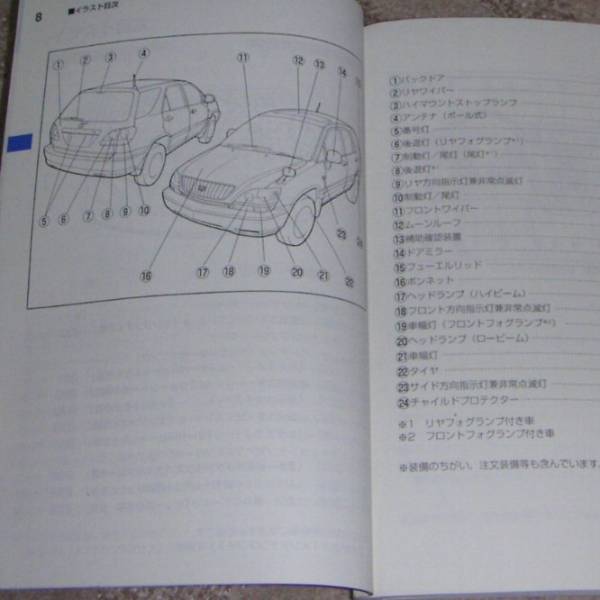 8 ■イラスト目次
① ② ③ ④ ⑪ ⑫ ⑬ ⑭
⑤ ⑥ ⑦ ⑧ ⑨ ⑩
⑯ ⑰ ⑱ ⑲ ⑳ ㉑ ㉒
①バックドア
②リヤワイパー
③ハイマウントストップランプ
④アンテナ（ポール式）
⑤番号灯
⑥後退灯（リヤフォグランプ※1）
⑦制動灯／尾灯（尾灯※1）
⑧後退灯※1
⑨リヤ方向指示灯兼非常点滅灯
⑩制動灯／尾灯
⑪フロントワイパー
⑫ムーンルーフ
⑬補助確認装置
⑭ドアミラー
⑮フューエルリッド
⑯ボンネット
⑰ヘッドランプ（ハイビーム）
⑱フロント方向指示灯兼非常点滅灯
⑲車幅灯（フロントフォグランプ※2）
⑳ヘッドランプ（ロービーム）
㉑車幅灯
㉒タイヤ
㉓サイド方向指示灯兼非常点滅灯
㉔チャイルドプロテクター
※1 リヤフォグランプ付き車
※2 フロントフォグランプ付き車
※装備のちがい、注文装備等も含んでいます。